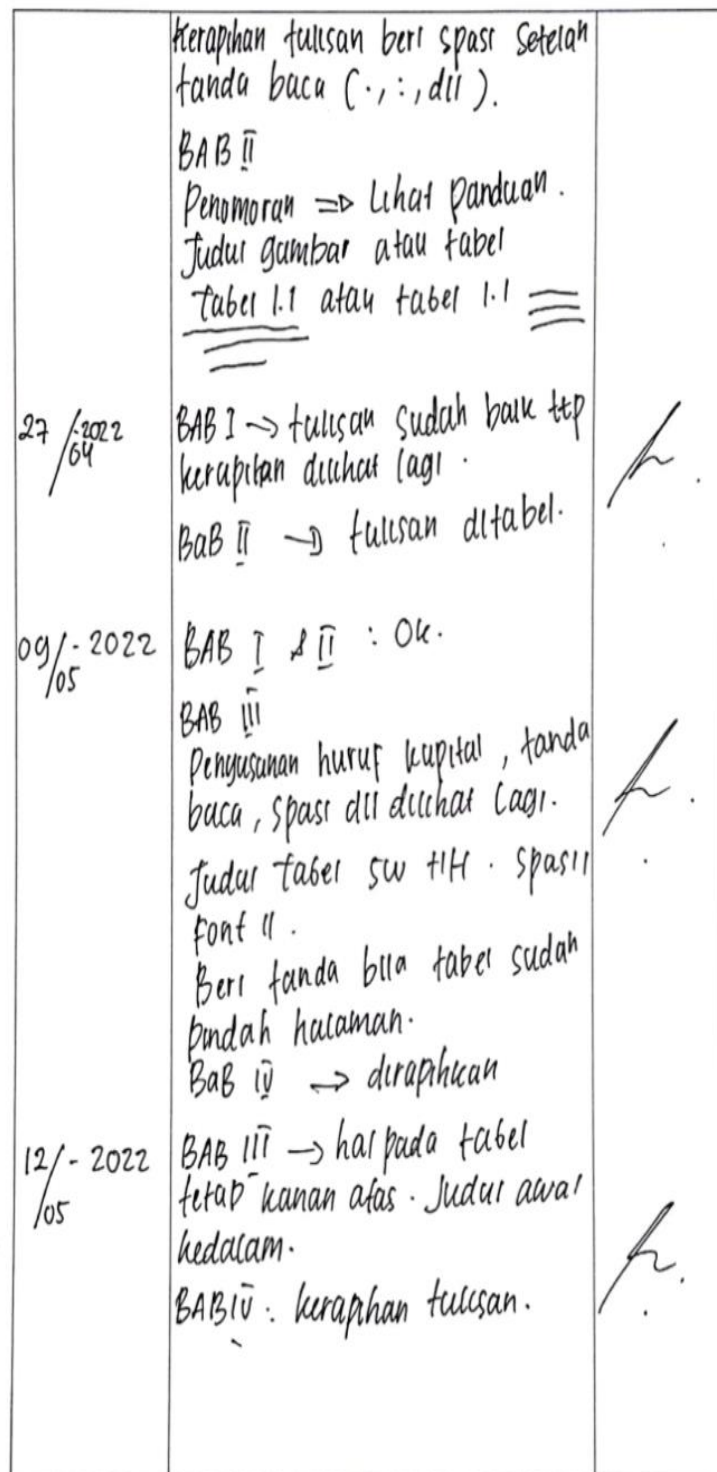 Kerapihan tulisan beri spasi setelah
tanda baca (.,:,dll).
BAB II
Penomoran => Lihat panduan.
Judul gambar atau tabel
tabel 1.1 atau tabel 1.1
27/04-2022
BAB I -> tulisan sudah baik ttp
kerapihan dilihat lagi.
BaB II -> tulisan ditabel.
09/05-2022
BAB I & II : Ok.
BAB III
Penyusunan huruf kapital, tanda
baca, spasi dll dilihat lagi.
Judul tabel . spasi 1
Font 11.
Beri tanda bila tabel sudah
pindah halaman.
BaB IV -> dirapihkan
12/05-2022
BAB III -> hal pada tabel
tetap kanan atas. Judul awal
kedalam.
BAB IV : kerapihan tulisan.